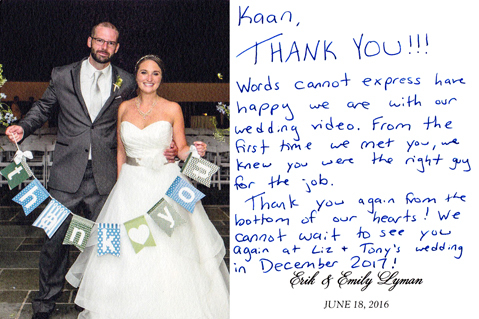 thank you
Kaan,
THANK YOU!!!
Words cannot express have
happy we are with our
wedding video. From the
first time we met you, we
knew you were the right guy
for the job.
Thank you again from the
bottom of our hearts! We
cannot wait to see you
again at Liz + Tony's wedding
in December 2017!
Erik & Emily Lyman
JUNE 18, 2016